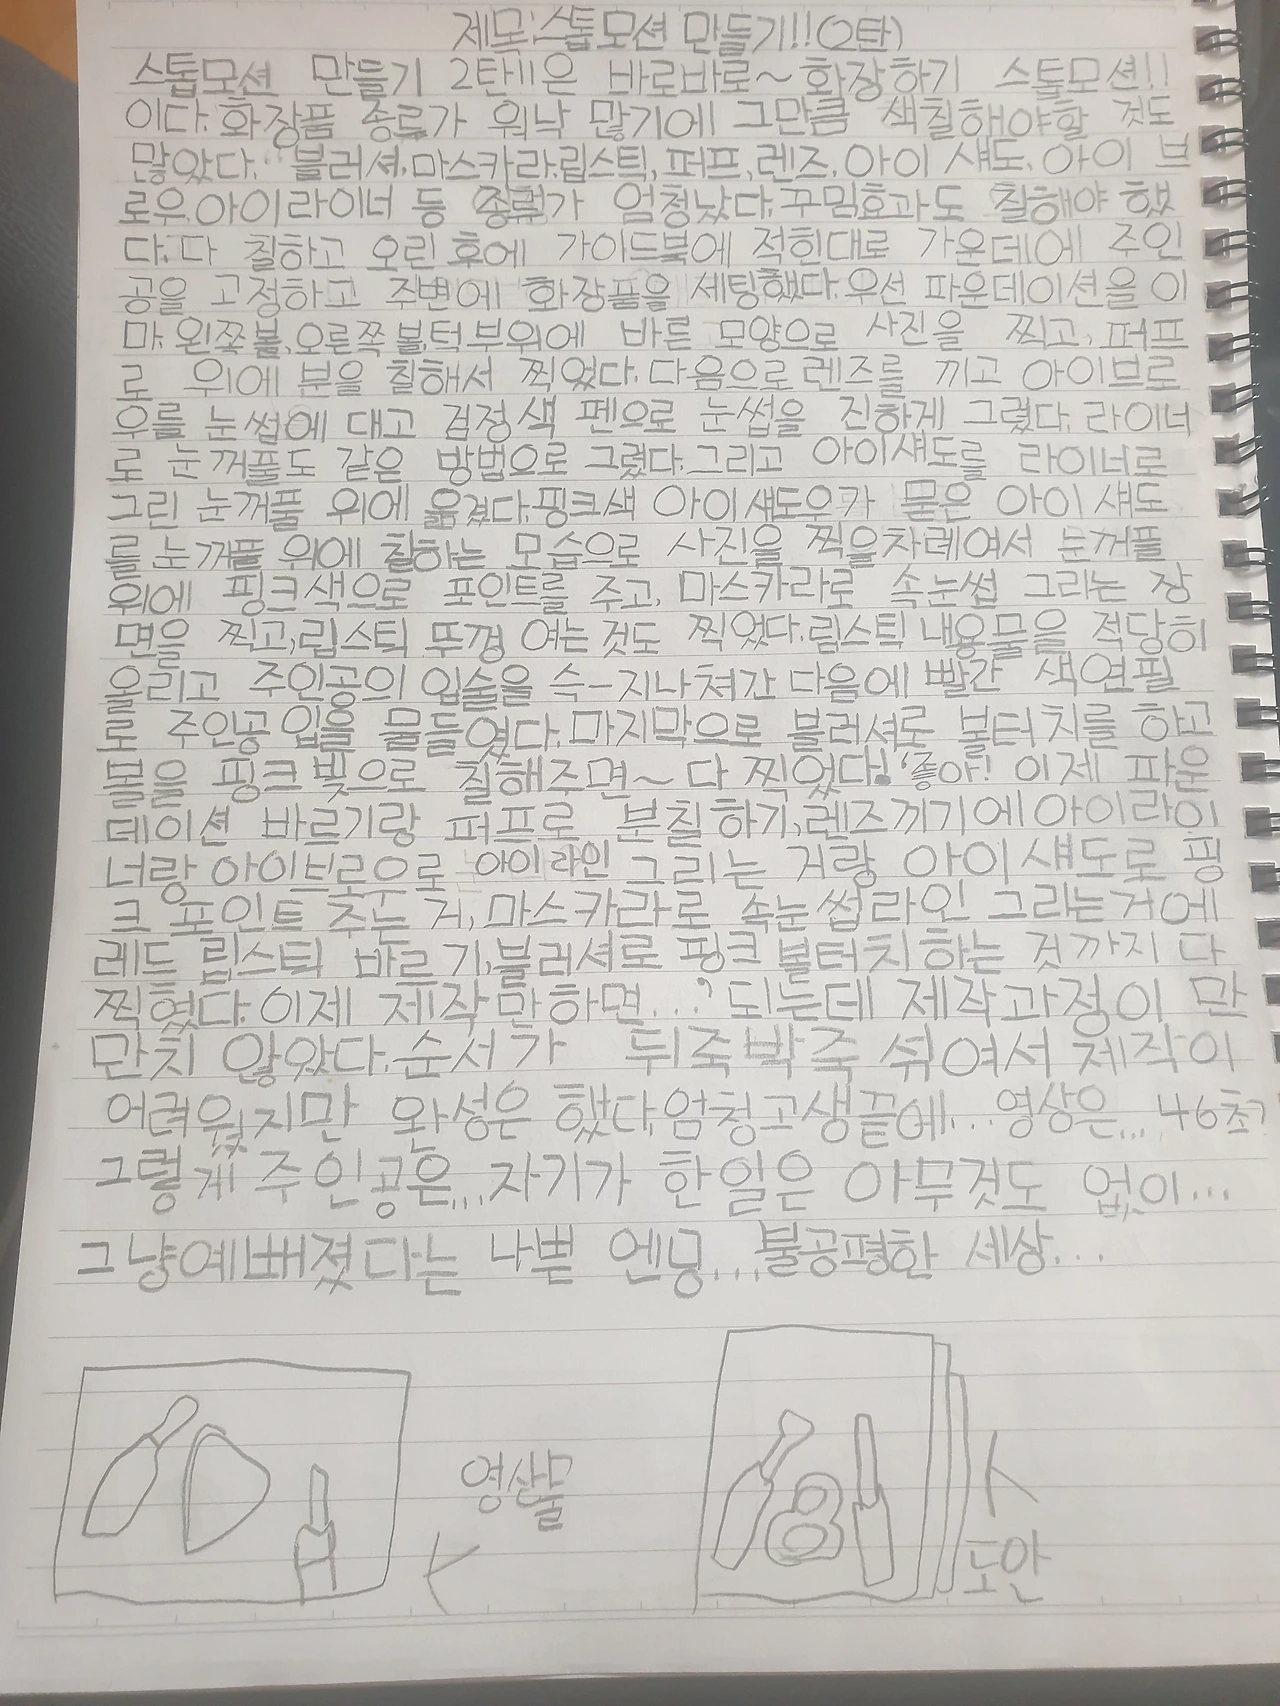 제목:스톱모션 만들기!!(2탄)
스톱모션 만들기 2탄!!은 바로바로~화장하기 스톱모션!!
이다.화장품 종류가 워낙 많기에 그만큼 색칠해야할 것도
많았다. 블러셔,마스카라,립스틱,퍼프,렌즈,아이 섀도,아이 브
로우,아이라이너 등 종류가 엄청났다.꾸밈효과도 칠해야 했
다.다 칠하고 오린 후에 가이드북에 적힌대로 가운데에 주인
공을 고정하고 주변에 화장품을 세팅했다.우선 파운데이션을 이
마,왼쪽볼,오른쪽 볼,턱 부위에 바른 모양으로 사진을 찍고,퍼프
로 위에 분을 칠해서 찍었다.다음으로 렌즈를 끼고 아이브로
우를 눈썹에 대고 검정색 펜으로 눈썹을 진하게 그렸다.라이너
로 눈꺼풀도 같은 방법으로 그렸다.그리고 아이섀도를 라이너로
그린 눈꺼풀 위에 옮겼다.핑크색 아이섀도우가 묻은 아이 섀도
를 눈꺼풀 위에 칠하는 모습으로 사진을 찍을차례여서 눈꺼풀
위에 핑크색으로 포인트를 주고, 마스카라로 속눈썹 그리는 장
면을 찍고,립스틱 뚜껑 여는것도 찍었다.립스틱 내용물을 적당히
올리고 주인공의 입술을 슥-지나쳐간 다음에 빨간 색연필
로 주인공 입을 물들였다.마지막으로 블러셔로 볼터치를 하고
볼을 핑크빛으로 칠해주면~다 찍었다!'좋아! 이제 파운
데이션 바르기랑 퍼프로 분칠하기,렌즈끼기에아이라이
너랑 아이브로우로 아이라인 그리는 거랑 아이섀도로 핑
크 포인트 주는 거,마스카라로 속눈썹라인 그리는거에
레드 립스틱 바르기,블러셔로 핑크 볼터치하는 것까지 다
찍혔다.이제 제작만하면...'되는데 제작과정이 만
만치 않았다.순서가 뒤죽박죽 섞여서 제작이
어려웠지만 완성은 했다.엄청고생끝에...영상은...46초?
그렇게 주인공은...자기가 한일은 아무것도 없이...
그냥예뻐졌다는 나쁜 엔딩...불공평한 세상...
영상물
도안